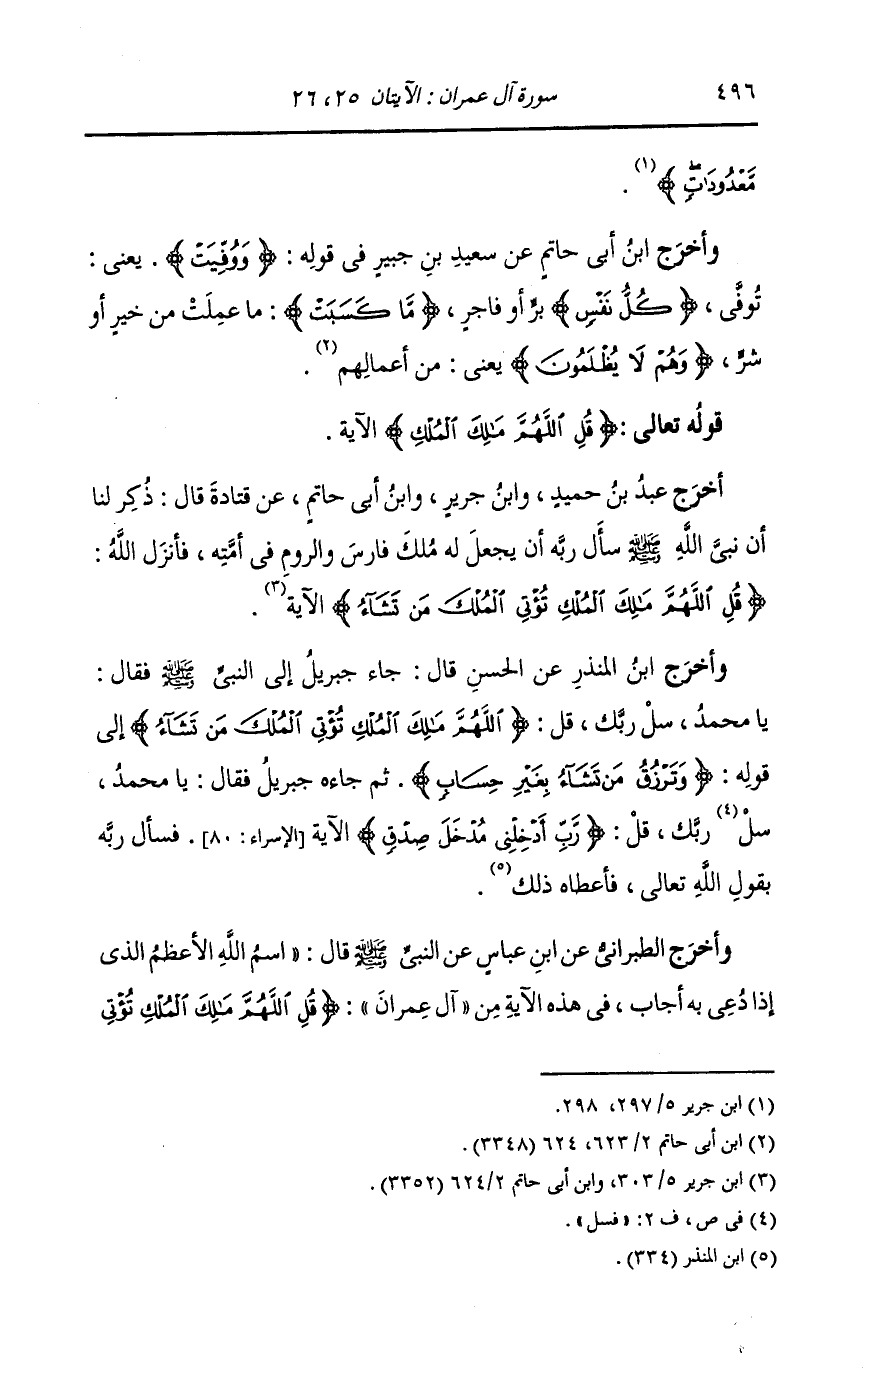 ٤٩٦
سورة آل عمران : الآيتان ٢٥، ٢٦
مَّعْدُودَاتٍ ﴾(١) .
وأخرَج ابنُ أبى حاتمٍ عن سعيدِ بنِ جبيرٍ فى قولِه : ﴿ وَوُفِّيَتْ ﴾ . يعنى :
تُوفَّى ، ﴿ كُلُّ نَفْسٍ ﴾ بَرٍّ أو فاجرٍ ، ﴿ مَّا كَسَبَتْ ﴾ : ما عمِلَتْ من خيرٍ أو
شرٍّ ، ﴿ وَهُمْ لَا يُظْلَمُونَ ﴾ يعنى : من أعمالِهم(٢) .
قولُه تعالى : ﴿ قُلِ اللَّهُمَّ مَالِكَ الْمُلْكِ ﴾ الآية .
أخرَج عبدُ بنُ حميدٍ ، وابنُ جريرٍ ، وابنُ أبى حاتمٍ ، عن قتادةَ قال : ذُكِر لنا
أن نبىَّ اللَّهِ ﷺ سأَل ربَّه أن يجعلَ له مُلكَ فارسَ والرومِ فى أمَّتِه ، فأنزَل اللَّهُ :
﴿ قُلِ اللَّهُمَّ مَالِكَ الْمُلْكِ تُؤْتِي الْمُلْكَ مَن تَشَاءُ ﴾ الآية(٣) .
وأخرَج ابنُ المنذرِ عن الحسنِ قال : جاء جبريلُ إلى النبىِّ ﷺ فقال :
يا محمدُ ، سلْ ربَّك ، قل : ﴿ اللَّهُمَّ مَالِكَ الْمُلْكِ تُؤْتِي الْمُلْكَ مَن تَشَاءُ ﴾ إلى
قولِه : ﴿ وَتَرْزُقُ مَن تَشَاءُ بِغَيْرِ حِسَابٍ ﴾ . ثم جاءه جبريلُ فقال : يا محمدُ ،
سلْ(٤) ربَّك ، قلْ : ﴿ رَّبِّ أَدْخِلْنِي مُدْخَلَ صِدْقٍ ﴾ الآية [الإسراء : ٨٠] . فسأل ربَّه
بقولِ اللَّهِ تعالى ، فأعطاه ذلك(٥) .
وأخرَج الطبرانىُّ عن ابنِ عباسٍ عن النبىِّ ﷺ قال : « اسمُ اللَّهِ الأعظمُ الذى
إذا دُعِى به أجاب ، فى هذه الآيةِ مِن « آل عِمرانَ » : ﴿ قُلِ اللَّهُمَّ مَالِكَ الْمُلْكِ تُؤْتِي
(١) ابن جرير ٥/ ٢٩٧، ٢٩٨.
(٢) ابن أبى حاتم ٢/ ٦٢٣، ٦٢٤ (٣٣٤٨) .
(٣) ابن جرير ٥/ ٣٠٣، وابن أبى حاتم ٢/ ٦٢٤ (٣٣٥٢) .
(٤) فى ص ، ف ٢: « فسل » .
(٥) ابن المنذر (٣٣٤) .